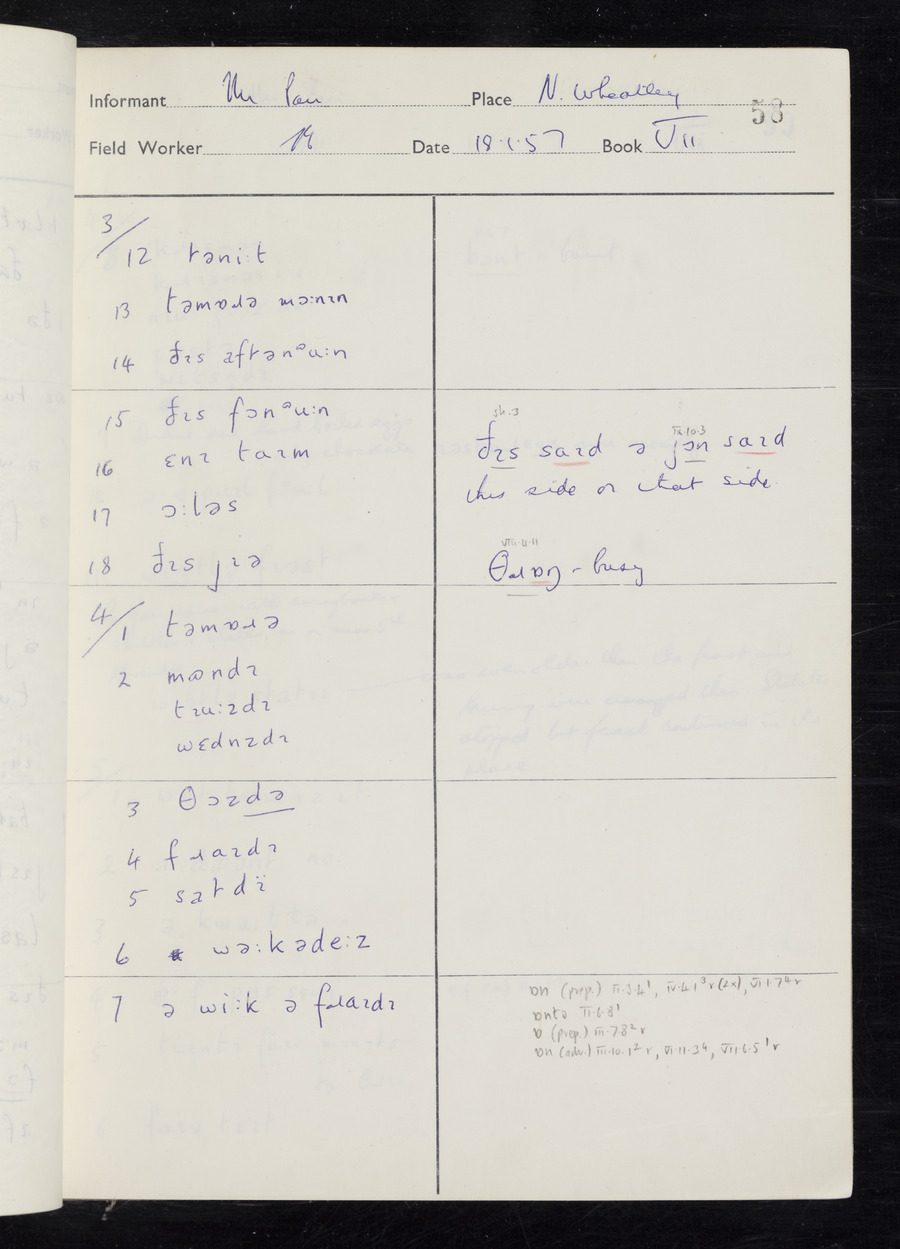 Informant Mr Place N. Wheatley 58
Field Worker Date 18.1.57 Book VII
3/
12 təniːt
13 təmɒɹə mɔːnɪn
14 ðɪs aftənᵊuːn
15 ðɪs fɔnᵊuːn
16 ɛnɪ taɪm
17 ɔːləs
18 ðɪs jɪə
4/
1 təmɒɹə
2 mɷndɪ
tɪuːzdɪ
wɛdnzdɪ
3 θɔzdə
4 fɹaɪdɪ
5 satdï
6 wəːkədeːz
7 ə wiːk ə fɹaɪdɪ
sh.3 IX.10.3
ðɪs saɪd ə jɔn saɪd
this side or that side
VIII.4.11
θɹɒŋ - busy
ɒn (prep.) II.3.4¹, IV.4.1³r (2x), VI.1.7⁴r
ɒntə II.6.8¹
ɒ (prep.) III.7.8²r
ɒn (adv.) III.10.1²r, VI.11.3⁴, VII.6.5¹r